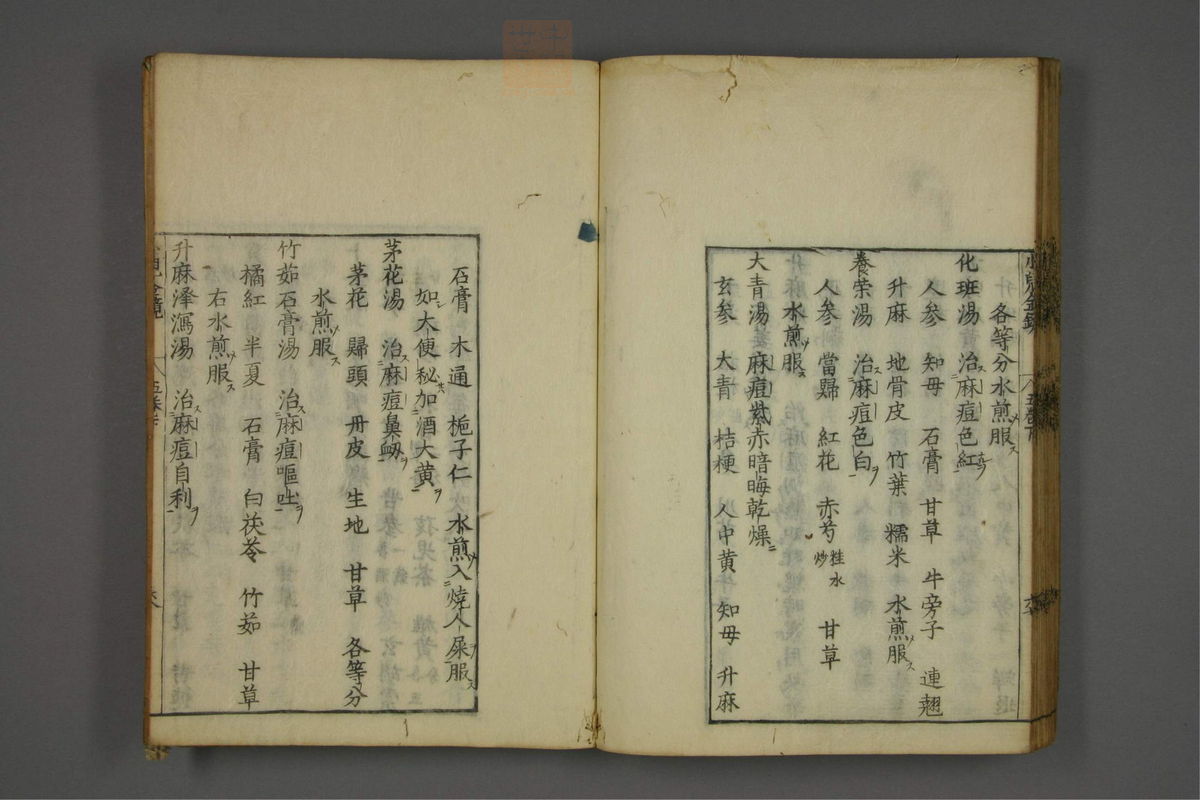 各等分水煎服
化班湯　治麻痘色紅
人参　知母　石膏　甘草　牛旁子　連翹
升麻　地骨皮　竹葉　糯米　水煎服
養荣湯　治麻痘色白
人参　當歸　紅花　赤芍桂水炒　甘草
水煎服
大青湯　麻痘紫赤暗晦乾燥
玄参　大青　桔梗　人中黄　知母　升麻
石膏　木通　梔子仁　水煎入焼人屎服
如大便秘加酒大黄
茅花湯　治麻痘鼻衂
茅花　歸頭　丹皮　生地　甘草　各等分
水煎服
竹茹石膏湯　治麻痘嘔吐
橘紅　半夏　石膏　白茯苓　竹茹　甘草
右水煎服
升麻澤瀉湯　治麻痘自利